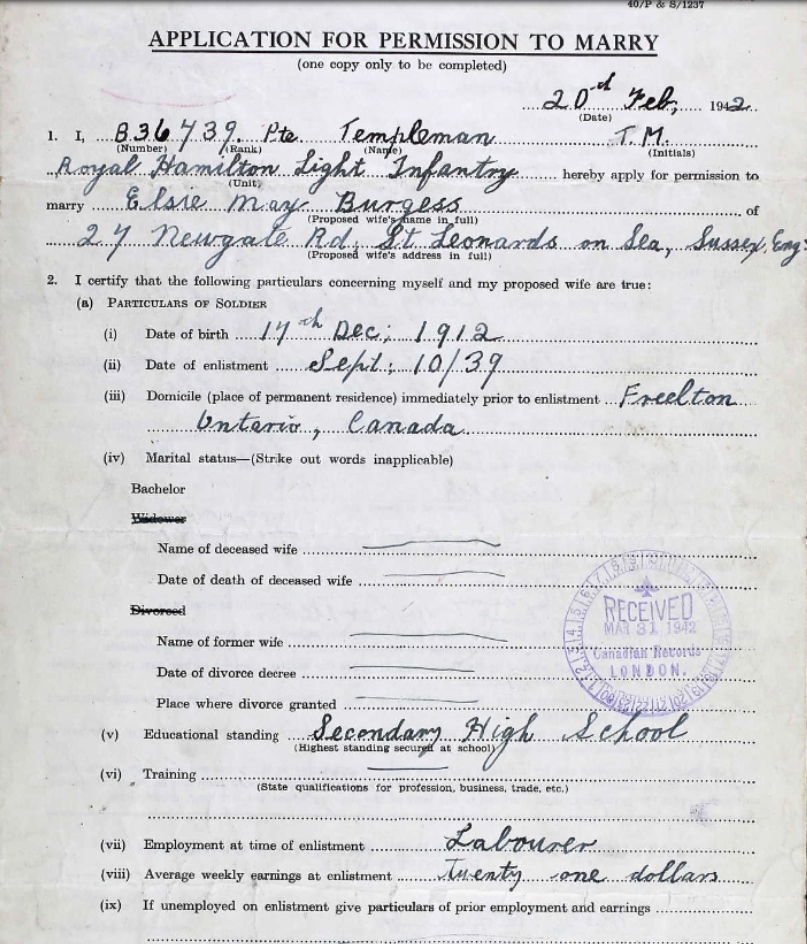 40/P & S/1237
APPLICATION FOR PERMISSION TO MARRY
(one copy only to be completed)
20th Feb, 1942
(Date)
1. I, B36439. Pte Templeman T.M.
(Number) (Rank) (Name) (Initials)
Royal Hamilton Light Infantry hereby apply for permission to
(Unit)
marry Elsie May Burgess of
(Proposed wife's name in full)
27 Newgate Rd, St Leonards on Sea, Sussex, Eng:
(Proposed wife's address in full)
2. I certify that the following particulars concerning myself and my proposed wife are true:
(a) PARTICULARS OF SOLDIER
(i) Date of birth 17th Dec; 1912
(ii) Date of enlistment Sept: 10/39
(iii) Domicile (place of permanent residence) immediately prior to enlistment Freelton
Ontario, Canada
(iv) Marital status—(Strike out words inapplicable)
Bachelor
Widower
Name of deceased wife
Date of death of deceased wife
Divorced
Name of former wife
Date of divorce decree
Place where divorce granted
RECEIVED
MAR 31 1942
Canadian Records
LONDON.
(v) Educational standing Secondary High School
(Highest standing secured at school)
(vi) Training
(State qualifications for profession, business, trade, etc.)
(vii) Employment at time of enlistment Labourer
(viii) Average weekly earnings at enlistment Twenty one dollars
(ix) If unemployed on enlistment give particulars of prior employment and earnings